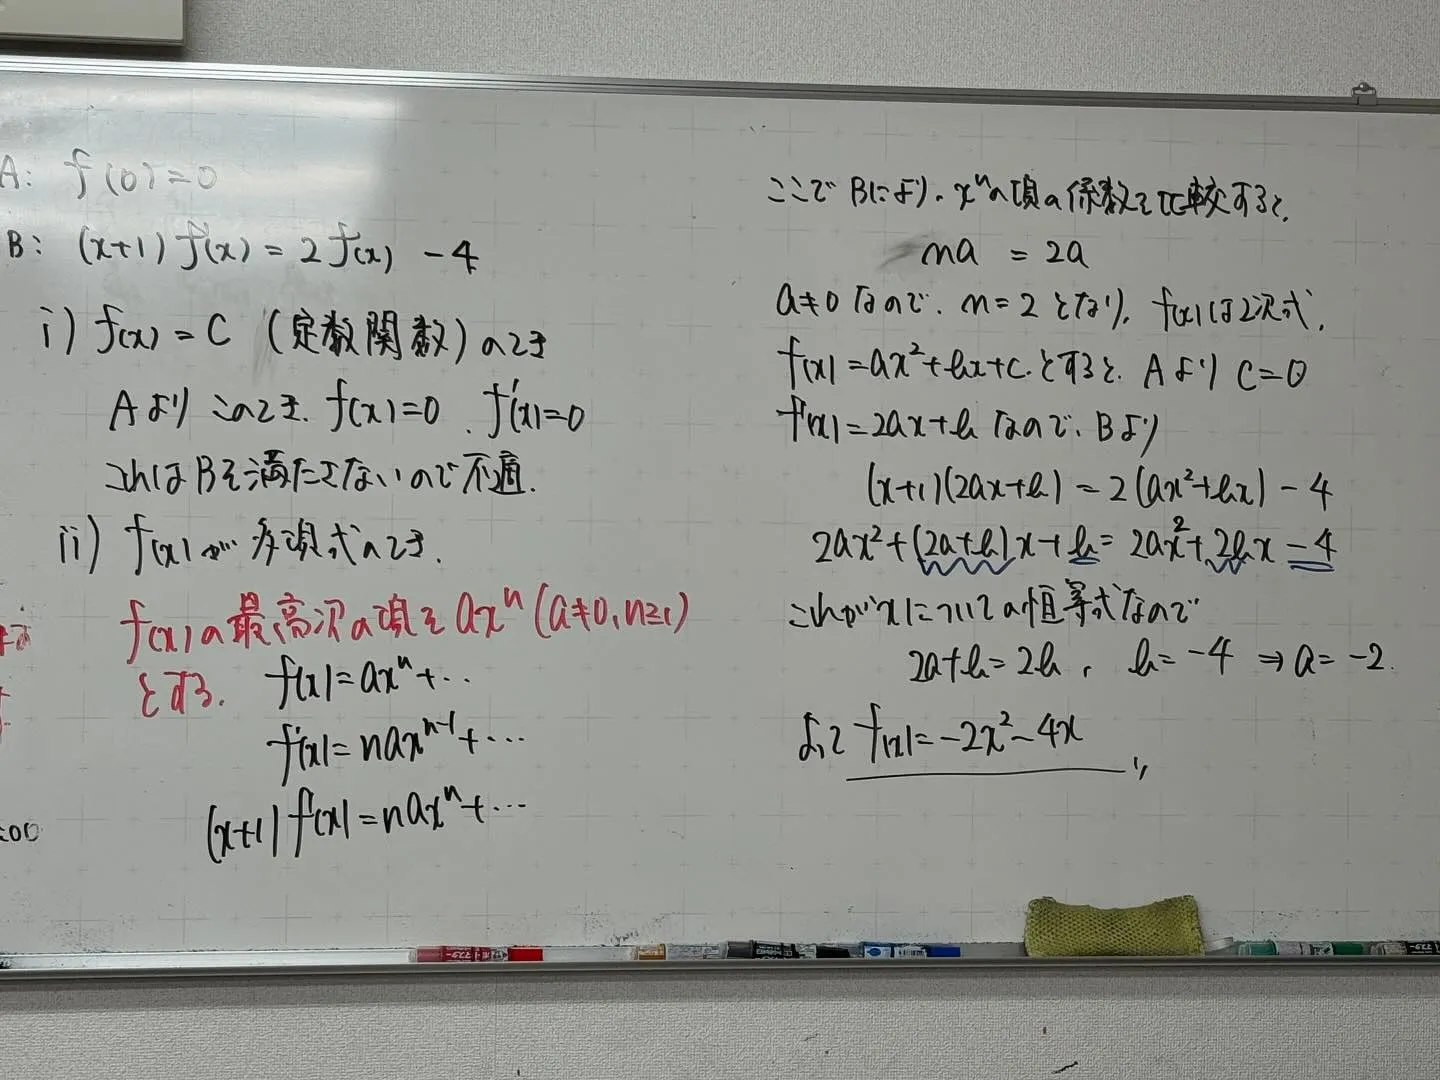 A: f(0)=0
B: (x+1)f'(x)=2f(x)-4
i) f(x)=C (定数関数)のとき
Aより このとき、f(x)=0、f'(x)=0
これはBを満たさないので不適.
ii) f(x)が多項式のとき.
f(x)の最高次の項をaxⁿ(a≠0,n≥1)
とする.
f(x)=axⁿ+‥
f'(x)=naxⁿ⁻¹+…
(x+1)f'(x)=naxⁿ+…
:00
ここでBにより、xⁿの項の係数を比較すると、
na=2a
a≠0なので、n=2となり、f(x)は2次式、
f(x)=ax²+bx+c とすると、Aより C=0
f'(x)=2ax+b なので、Bより
(x+1)(2ax+b)=2(ax²+bx)-4
2ax²+(2a+b)x+b=2ax²+2bx-4
これがxについての恒等式なので
2a+b=2b, b=-4 ⇒ a=-2.
よって f(x)=-2x²-4x